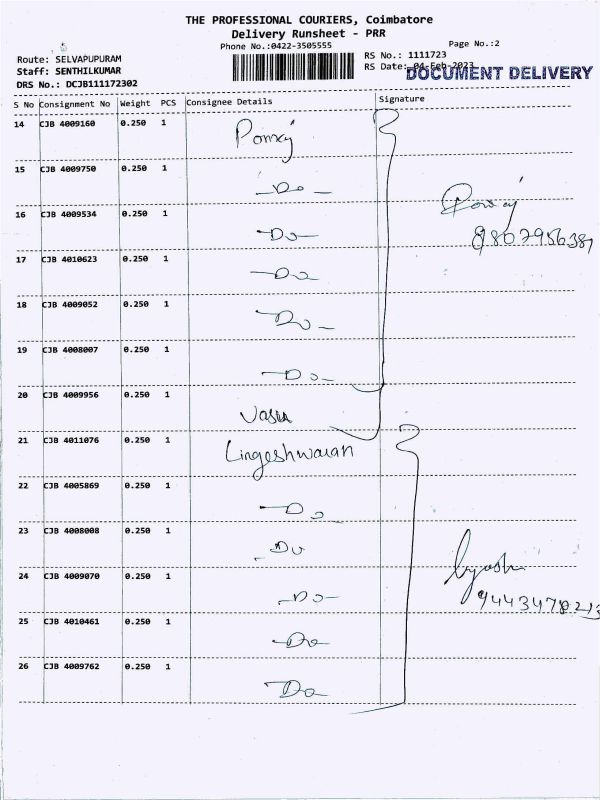 THE PROFESSIONAL COURIERS, Coimbatore
Delivery Runsheet - PRR
Phone No.:0422-3505555
Page No.:2
Route: SELVAPUPURAM
RS No.: 1111723
Staff: SENTHILKUMAR
RS Date: 04-Feb-2023
DOCUMENT DELIVERY
DRS No.: DCJB111172302
S No Consignment No Weight PCS Consignee Details Signature
14 CJB 4009160 0.250 1
15 CJB 4009750 0.250 1 -Do-
16 CJB 4009534 0.250 1 -Do-
17 CJB 4010623 0.250 1 -Do-
18 CJB 4009052 0.250 1 -Do-
19 CJB 4008007 0.250 1 -Do-
20 CJB 4009956 0.250 1 Vasu
21 CJB 4011076 0.250 1 Lingeshwaran
22 CJB 4005869 0.250 1 -Do
23 CJB 4008008 0.250 1 -Do
24 CJB 4009070 0.250 1 -Do-
25 CJB 4010461 0.250 1 -Do-
26 CJB 4009762 0.250 1 Do